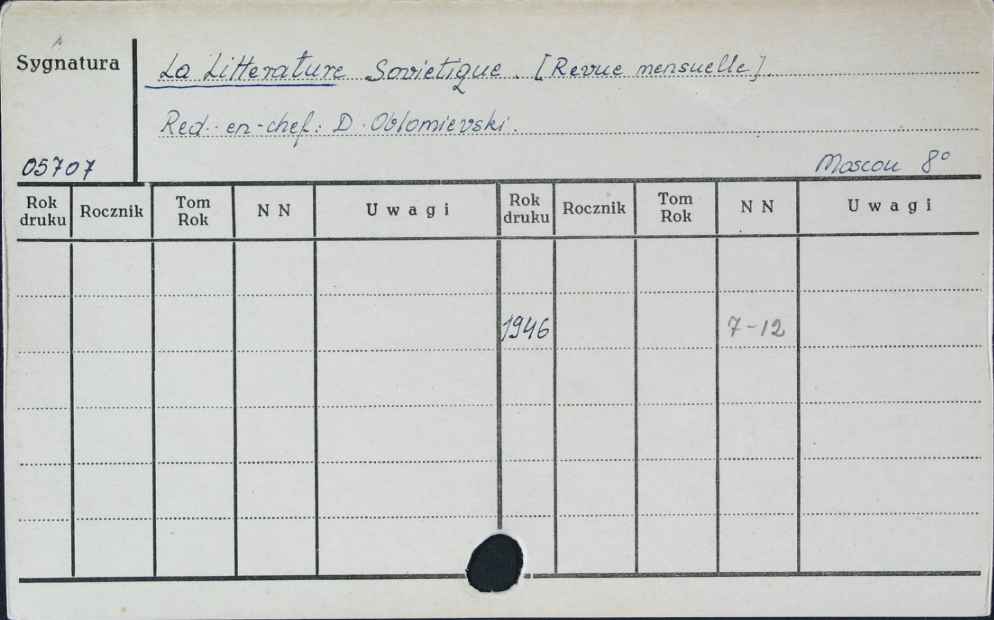 Sygnatura
La Litterature Sovietique. [Revue mensuelle].
Red. en-chef: D. Oblomievski.
05707
Moscou 8°
Rok druku Rocznik Tom Rok N N Uwagi Rok druku Rocznik Tom Rok N N Uwagi
1946 7-12